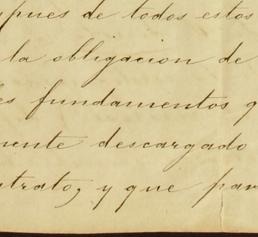 spues de todos estos
la obligacion de
es fundamentos q
mente descargado
trato, y que par